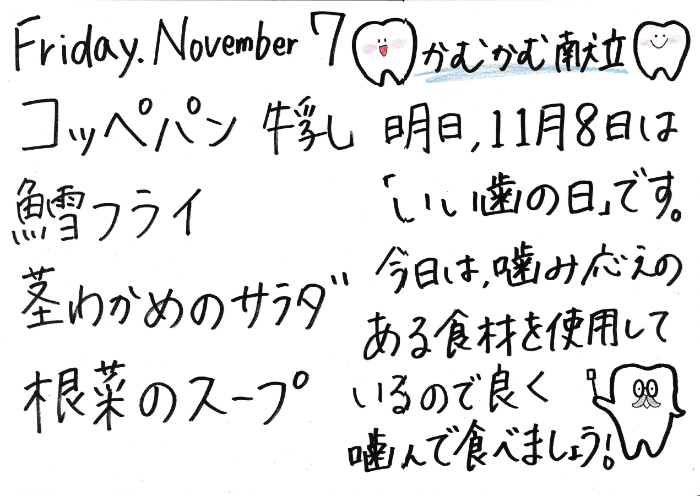 Friday. November 7
かむかむ献立
コッペパン 牛乳
鱈フライ
茎わかめのサラダ
根菜のスープ
明日,11月8日は
「いい歯の日」です。
今日は,噛み応えの
ある食材を使用して
いるので良く
噛んで食べましょう!